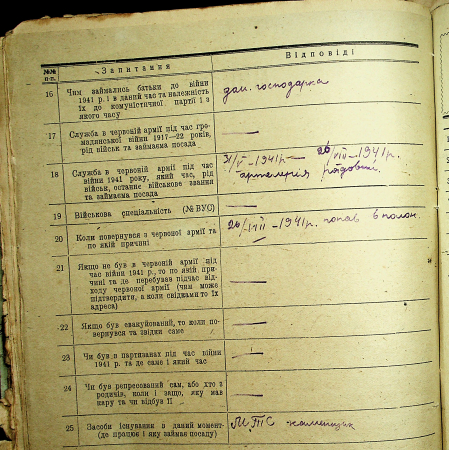 №№ п-п.
Запитання
Відповіді
16
Чим займались батьки до війни
1941 р. і в даний час та належність
їх до комуністичної партії і з
якого часу
дом. господарка
17
Служба в червоній армії під час гро-
мадянської війни 1917—22 років,
рід військ та займаєма посада
—
18
Служба в червоній армії під час
війни 1941 року, який час, рід
військ, останнє військове звання
та займаєма посада
—1941р — 26/VIII—1941р.
артилерія рядовий
19
Військова спеціальність (№ ВУС)
—
20
Коли повернувся з червоної армії та
по якій причині
26/VIII—1941р. попав в полон.
21
Якщо не був в червоній армії під
час війни 1941 р., то по якій при-
чині та де перебував підчас від-
ходу червоної армії (чим може
підтвердити, а коли свідками то їх
адреса)
—
22
Якщо був евакуйований, то коли по-
вернувся та звідки саме
—
23
Чи був в партизанах під час війни
1941 р. та де саме і який час
—
24
Чи був репресований сам, або хто з
родичів, коли і защо, яку мав
кару та чи відбув її
—
25
Засоби існування в даний момент-
(де працює і яку займає посаду)
МТС